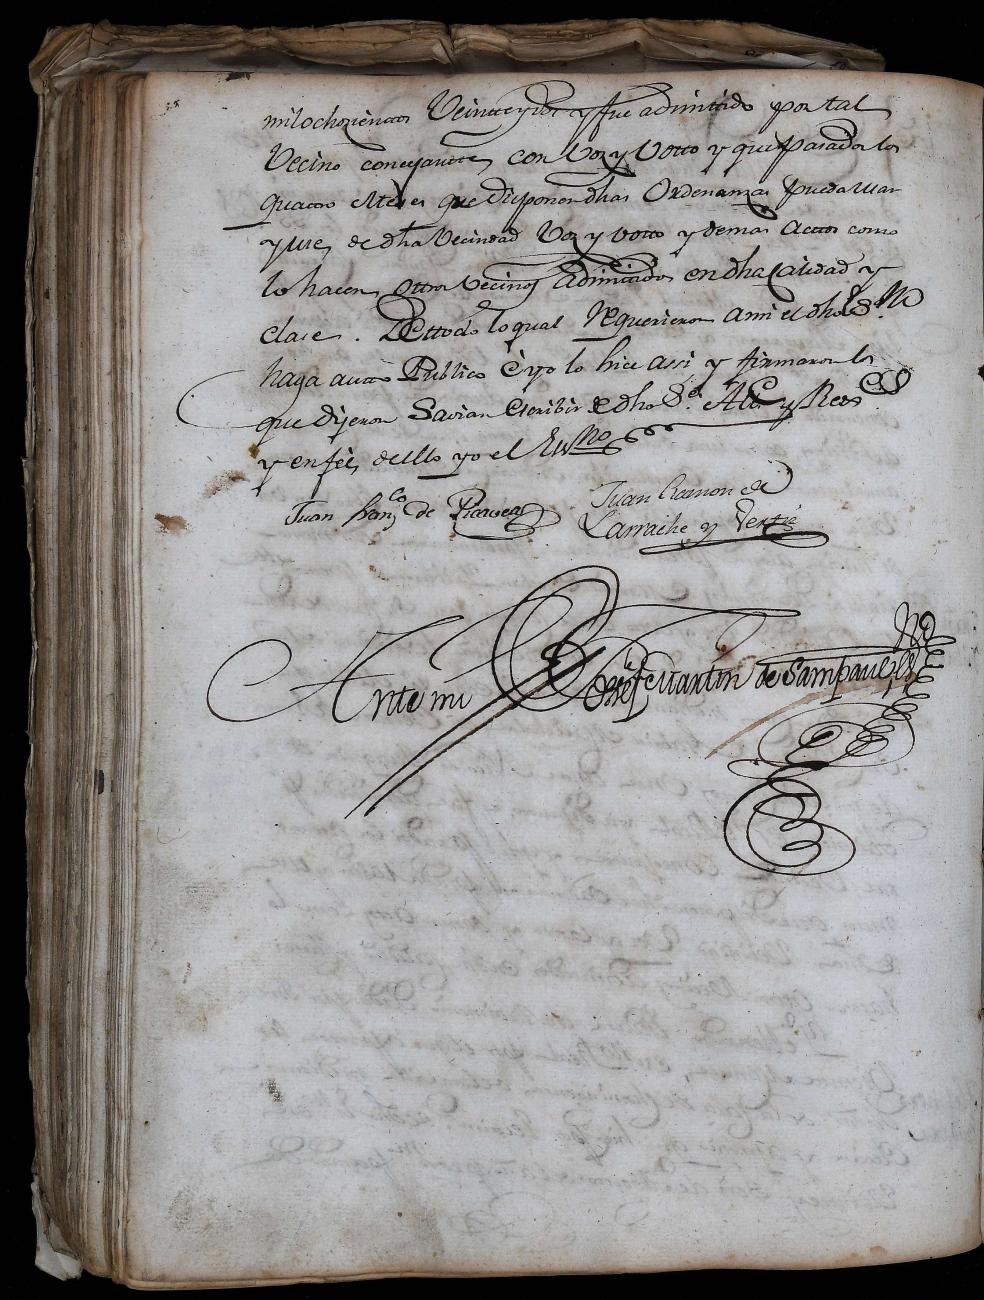 milochozientos Veinteydos y fue admitido por tal
Vecino concejante, con Voz y Votto y que pasados los
quatro Meses que disponen dhas Ordenanzas pueda usar
y use, de dha Vecindad Voz y votto y demas Acttos como
lo hacen, ottros Vecinos Admitidos, en dha calidad y
clase. De ttodo lo qual Requirieron a mi el dho Ess.no
haga autto Publico è yo lo hice assi y firmaron los
que dijeron Savian escribir de dho S.r Al.e y Rexs
y en feè, de ello yo el Ess.no
Juan Fran.co de
Juan Ramon de
Larraiche y Vertiz
Ante mi Josef Martin de Sampaul Ess.no